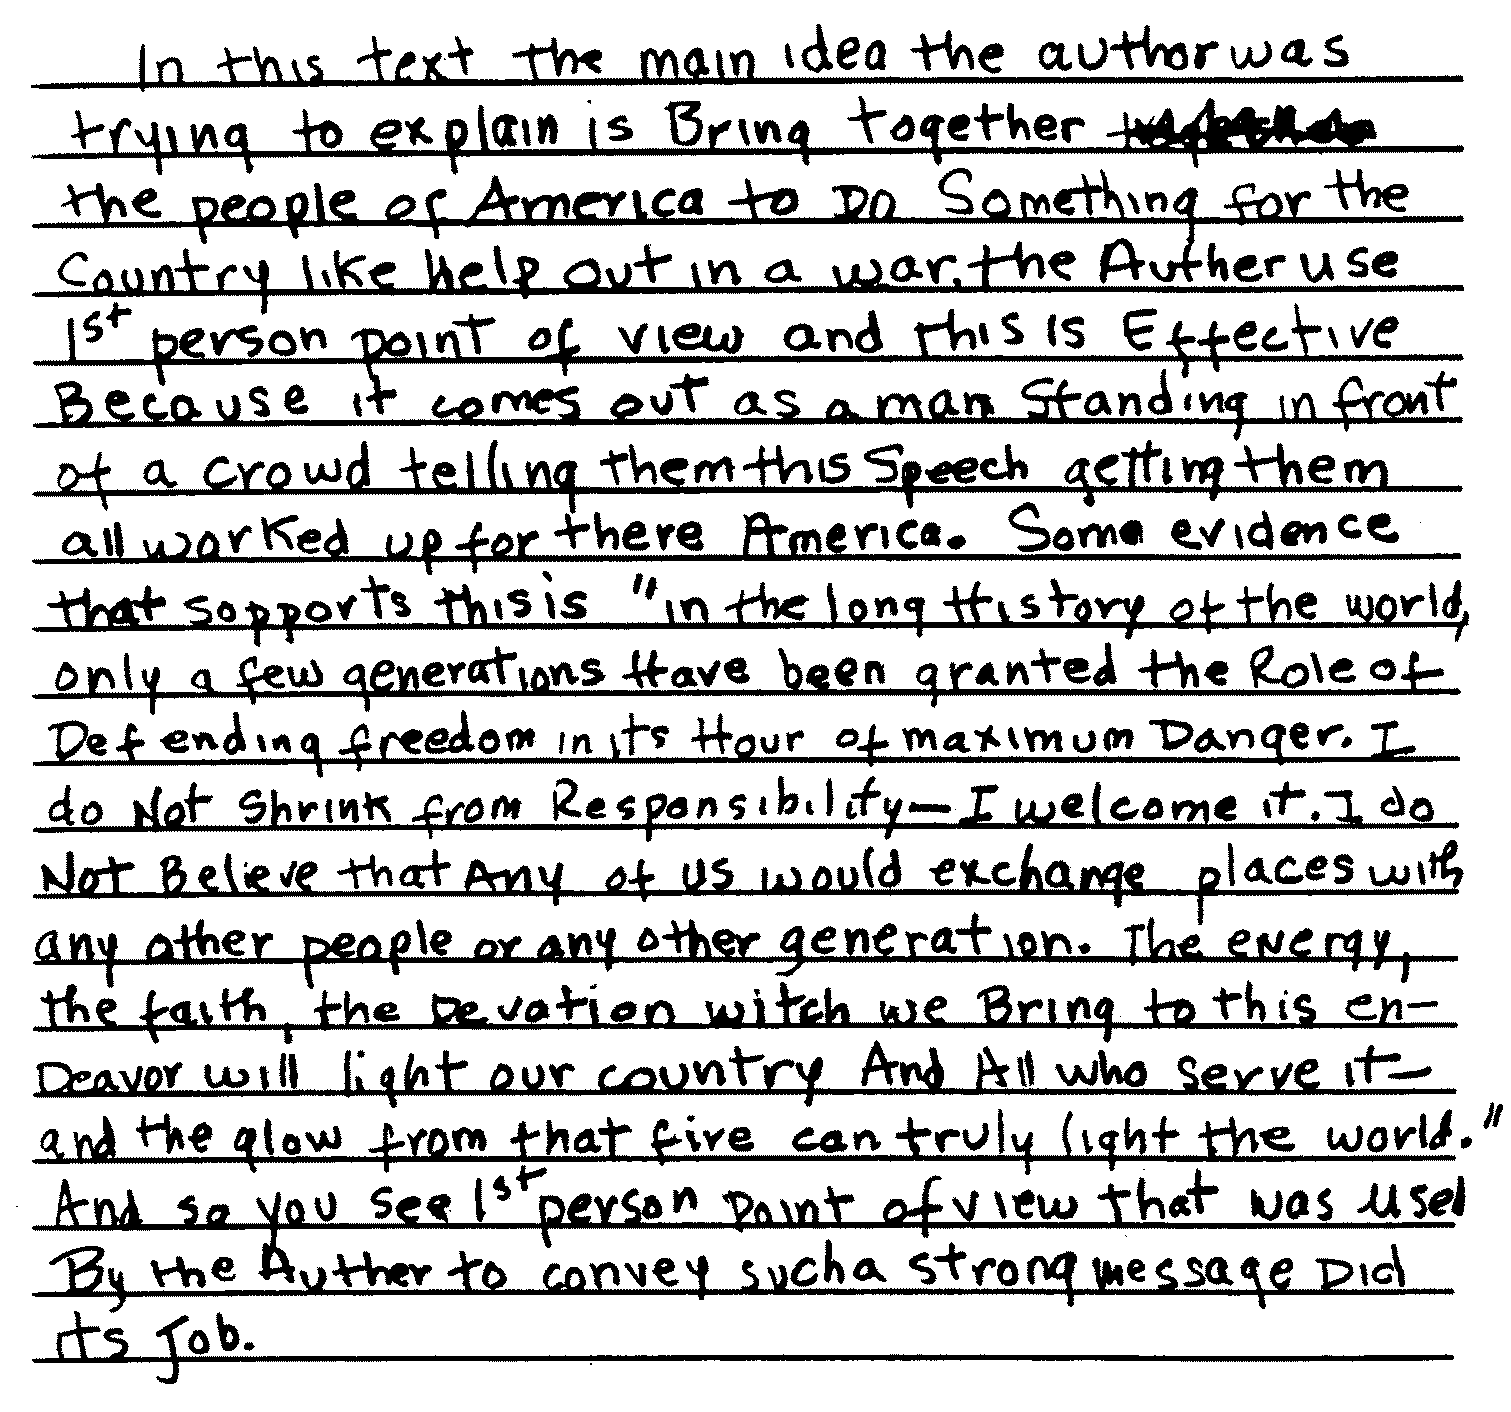 In this text the main idea the author was
trying to explain is Bring together
the people of America to Do Something for the
Country like help out in a war. the Auther use
1st person point of view and this is Effective
Because it comes out as a man Standing in front
of a crowd telling them this Speech getting them
all worked up for there America. Some evidence
that sopports this is "in the long History of the world,
only a few generations Have been granted the Role of
Defending freedom in its Hour of maximum Danger. I
do Not Shrink from Responsibility—I welcome it. I do
Not Believe that Any of us would exchange places with
any other people or any other generation. The eNergy,
the faith, the Devation witch we Bring to this en-
Deavor will light our country And All who serve it—
and the glow from that fire can truly light the world."
And so you see 1st person point of view that was used
By the Auther to convey such a strong message Did
its Job.